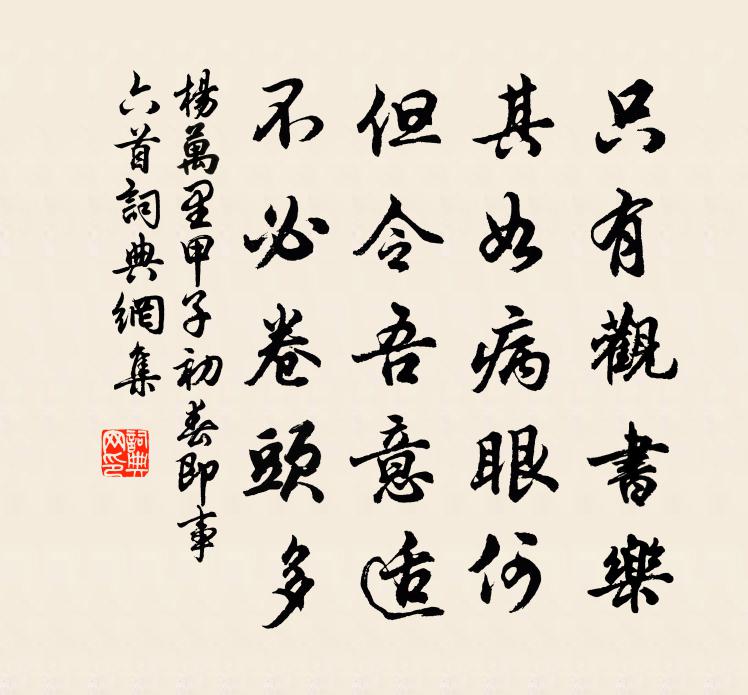 只有觀書樂
其如病眼何
但令吾意适
不必卷頭多
楊萬里甲子初春即事
六首詞典網集
詞典
网印